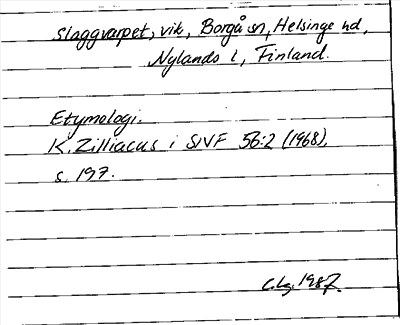 Slaggvarpet, vik, Borgå sn, Helsinge hd,
Nylands l, Finland.
Etymologi.
K. Zilliacus i SNF 56:2 (1968),
s. 197.
1987.